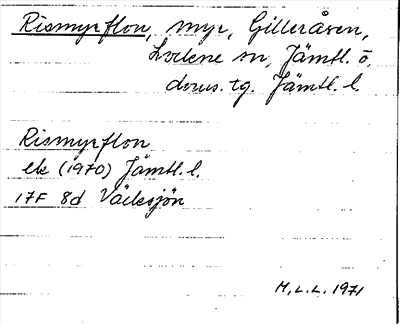 Rismyrflon, myr, Gilleråsen,
Lockne sn, Jämtl. ö.
doms. tg. Jämtl. l.
Rismyrflon
ek (1970) Jämtl. l.
17F 8d Väcksjön
M.L.L. 1971